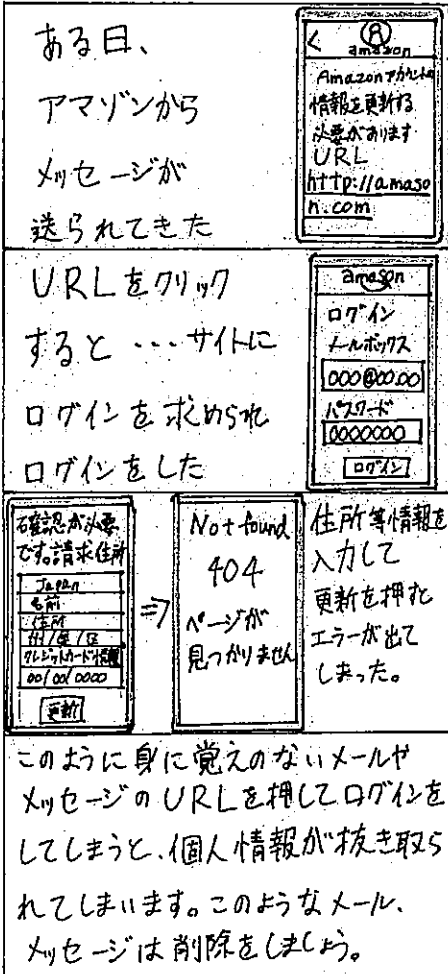 ある日、
アマゾンから
メッセージが
送られてきた
<
A
amazon
Amazonアカウントの
情報を更新する
必要があります
URL
http://amaso
n.com
URLをクリック
すると…サイトに
ログインを求められ
ログインをした
amason
ログイン
メールボックス
000@00.00
パスワード
0000000
ログイン
確認が必要
です。請求住所
Japan
名前
住所
クレジットカード情報
00/00/0000
更新
⇒
Not found
404
ページが
見つかりません
住所等情報を
入力して
更新を押すと
エラーが出て
しまった。
このように身に覚えのないメールや
メッセージのURLを押してログインを
してしまうと、個人情報が抜き取ら
れてしまいます。このようなメール、
メッセージは削除をしましょう。